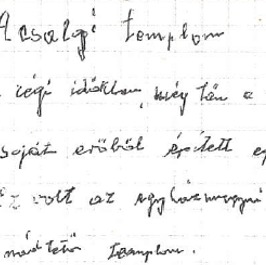 A csalogi templom
régi időkben még tán a
saját erőből épített
volt az egyházmegyei
templom.